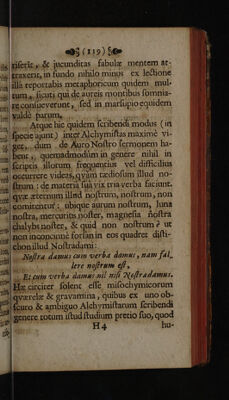 (119)
riserit, & jucunditas fabulæ mentem at-
traxerit, in fundo nihilo minus ex lectione
illa reportabis metaphoricum quidem mul-
tum, sicuti qui de aureis montibus somnia-
re consueverunt, sed in marsupio equidem
valde parum.
Atque hic quidem scribendi modus (in
specie ajunt) inter Alchymistas maxime vi-
get, dum de Auro Nostro sermonem ha-
bent, quemadmodum in genere nihil in
scriptis illorum frequentius vel difficilius
occurrere videas, quam tædiosum illud no-
strum: de materia sua vix tria verba faciunt,
quæ æternum illud nostrum, nostrum, non
comitentur: ubique aurum nostrum, luna
nostra, mercurius noster, magnesia nostra
chalybs noster, & quid non nostrum? ut
non inconcinne forsan in eos quadret disti-
chon illud Nostradami:
Nostra damus cum verba damus, nam fal-
lere nostrum est,
Et cum verba damus nil nisi Nostradamus.
Hæ circiter solent esse misochymicorum
querelæ & gravamina, quibus ex uno ob-
scuro & ambiguo Alchymistarum scribendi
genere totum istud studium pretio suo, quod
H 4 hu-